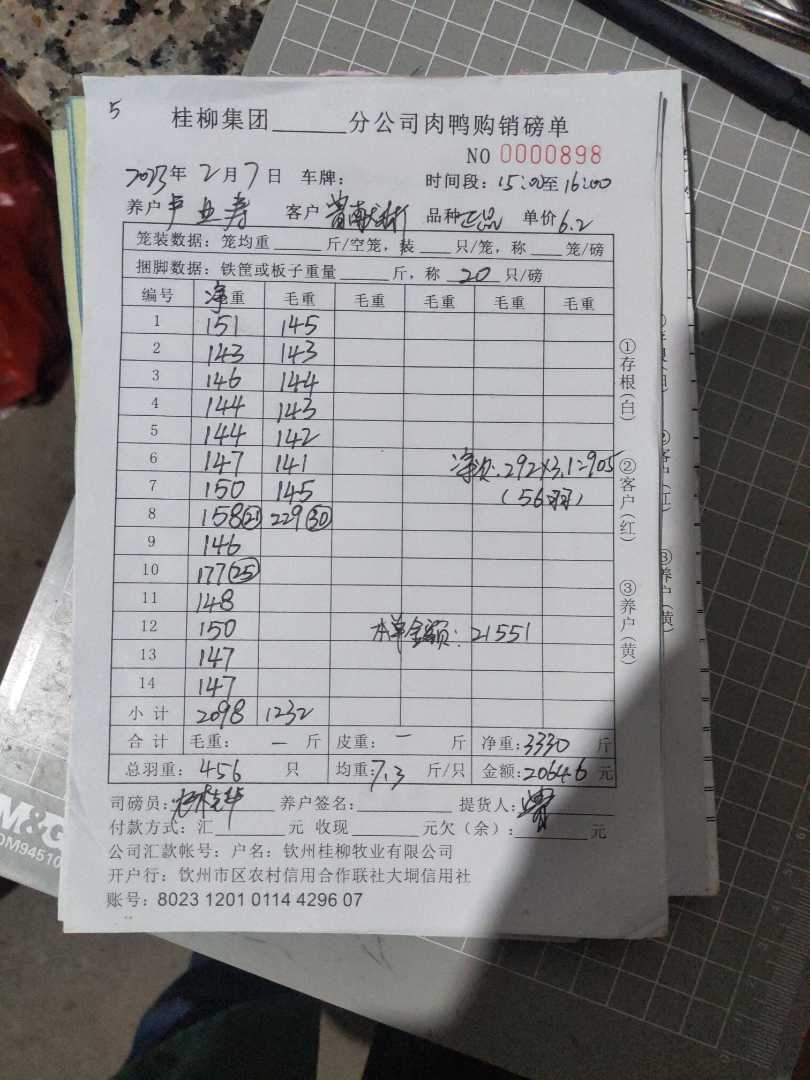 5
桂柳集团______分公司肉鸭购销磅单
NO 0000898
2023年 2月7日 车牌: 时间段:15:00至16:00
养户 卢业寿 客户 品种 正品 单价 6.2
笼装数据:笼均重_____斤/空笼,装____只/笼,称____笼/磅
捆脚数据:铁筐或板子重量_____斤,称 20 只/磅
编号 净重 毛重 毛重 毛重 毛重 毛重
1 151 145
2 143 143
3 146 144
4 144 143
5 144 142
6 147 141
净次:292×3.1=905
7 150 145
(56羽)
8 158(21) 229(30)
9 146
10 177(25)
11 148
12 150
本单金额:21551
13 147
14 147
小计 2098 1232
合计 毛重: — 斤 皮重: — 斤 净重:3330 斤
总羽重: 456 只 均重:7.3 斤/只 金额:20646 元
司磅员: 养户签名:________ 提货人:
付款方式:汇_______元 收现_______元欠(余):_______元
公司汇款帐号:户名:钦州桂柳牧业有限公司
开户行:钦州市区农村信用合作联社大垌信用社
账号:8023 1201 0114 4296 07
①存根(白)
②客户(红)
③养户(黄)
M&G
DM94510